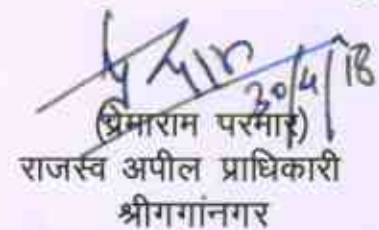 30/4/18
(प्रेमाराम परमार)
राजस्व अपील प्राधिकारी
श्रीगगांनगर